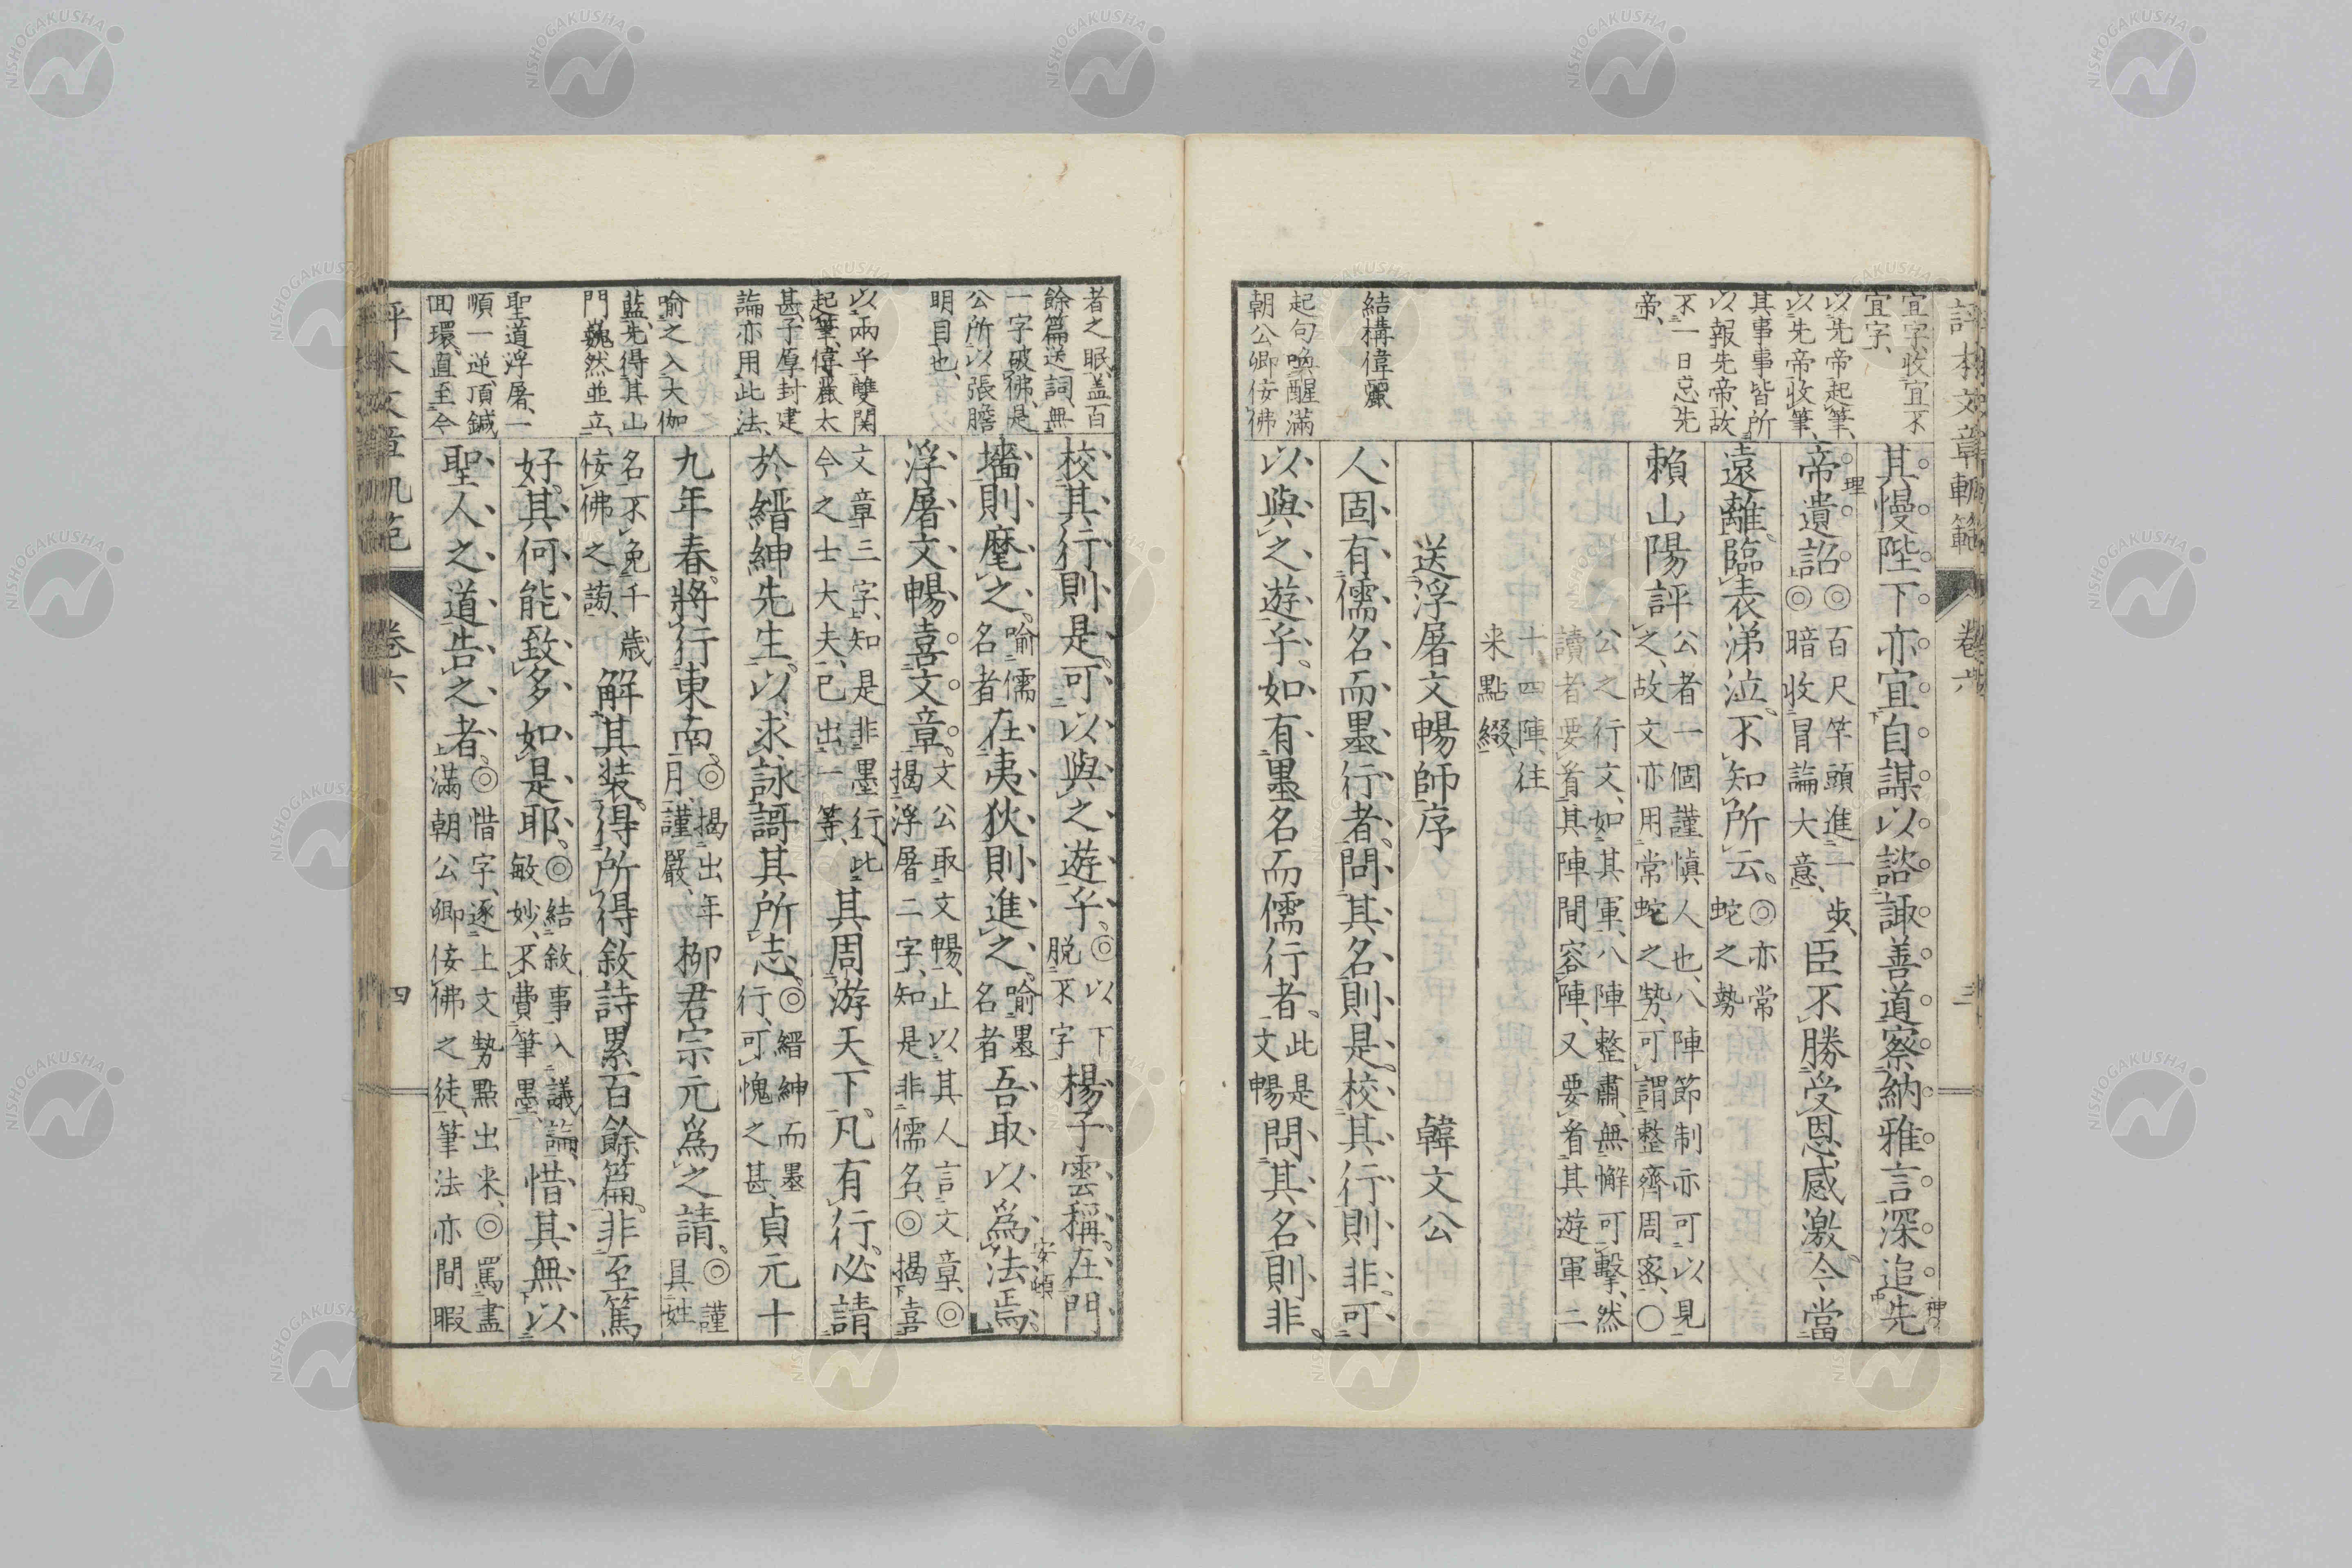 評本文章軌範
卷六
三
宜字收宜不
宜字、
以先帝起筆、
以先帝收筆、
其事事皆所
以報先帝、故
不一日忘先
帝、
結構偉麗
起句喚醒滿
朝公卿佞佛
其慢陛下亦宜自謀以諮諏善道察納雅言深追先
帝遺詔◎百尺竿頭進一步、
◎暗收冒論大意、
臣不勝受恩感激今當
遠離臨表涕泣不知所云。◎亦常
蛇之勢
賴山陽評公者一個謹愼人也、八陣節制亦可以見
之、故文亦用常蛇之勢、可謂整齊周密、○
公之行文、如其軍、八陣整肅、無懈可擊、然
讀者要看其陣間容陣、又要看其遊軍二
十四陣、往
来點綴、
送浮屠文暢師序 韓文公
人固有儒名而墨行者。問其名則是。校其行則非。可
以與之遊乎。如有墨名而儒行者。此是
文暢
問其名則非。
者之眠、蓋百
餘篇送詞、無
一字破佛、是
公所以張膽
明目也、
以兩乎雙関
起筆、偉麗太
甚、子厚封建
論亦用此法、
喻之入大伽
藍、先得其山
門巍然並立、
聖道浮屠、一
順一逆、頂鍼
回環、直至今
校其行則是。可以與之遊乎、◎以下
脱不字
楊子雲稱。在門
墻則麾之。喻儒
名者
在夷狄則進之。喻墨
名者
吾取以爲法焉。
浮屠文暢喜文章。文公取文暢、止以其人言文章、◎
揭浮屠二字、知是非儒名、◎揭喜
文章三字、知是非墨行、此
今之士大夫、已出一等、
其周游天下。凡有行。必請
於縉紳先生。以求詠謌其所志。◎縉紳而墨
行、可愧之甚、
貞元十
九年春。將行東南。◎揭出年
月、謹嚴、
柳君宗元爲之請。◎謹
具姓
名、不免千歲
佞佛之謗、
解其装。得所得敘詩累百餘篇。非至篤
好。其何能致多如是耶。◎結敘事入議論、
敏妙、不費筆墨、
惜其無以
聖人之道告之者。◎惜字、逐上文勢點出来、◎罵盡
滿朝公卿佞佛之徒、筆法亦間暇
評本文章軌範
卷六
四